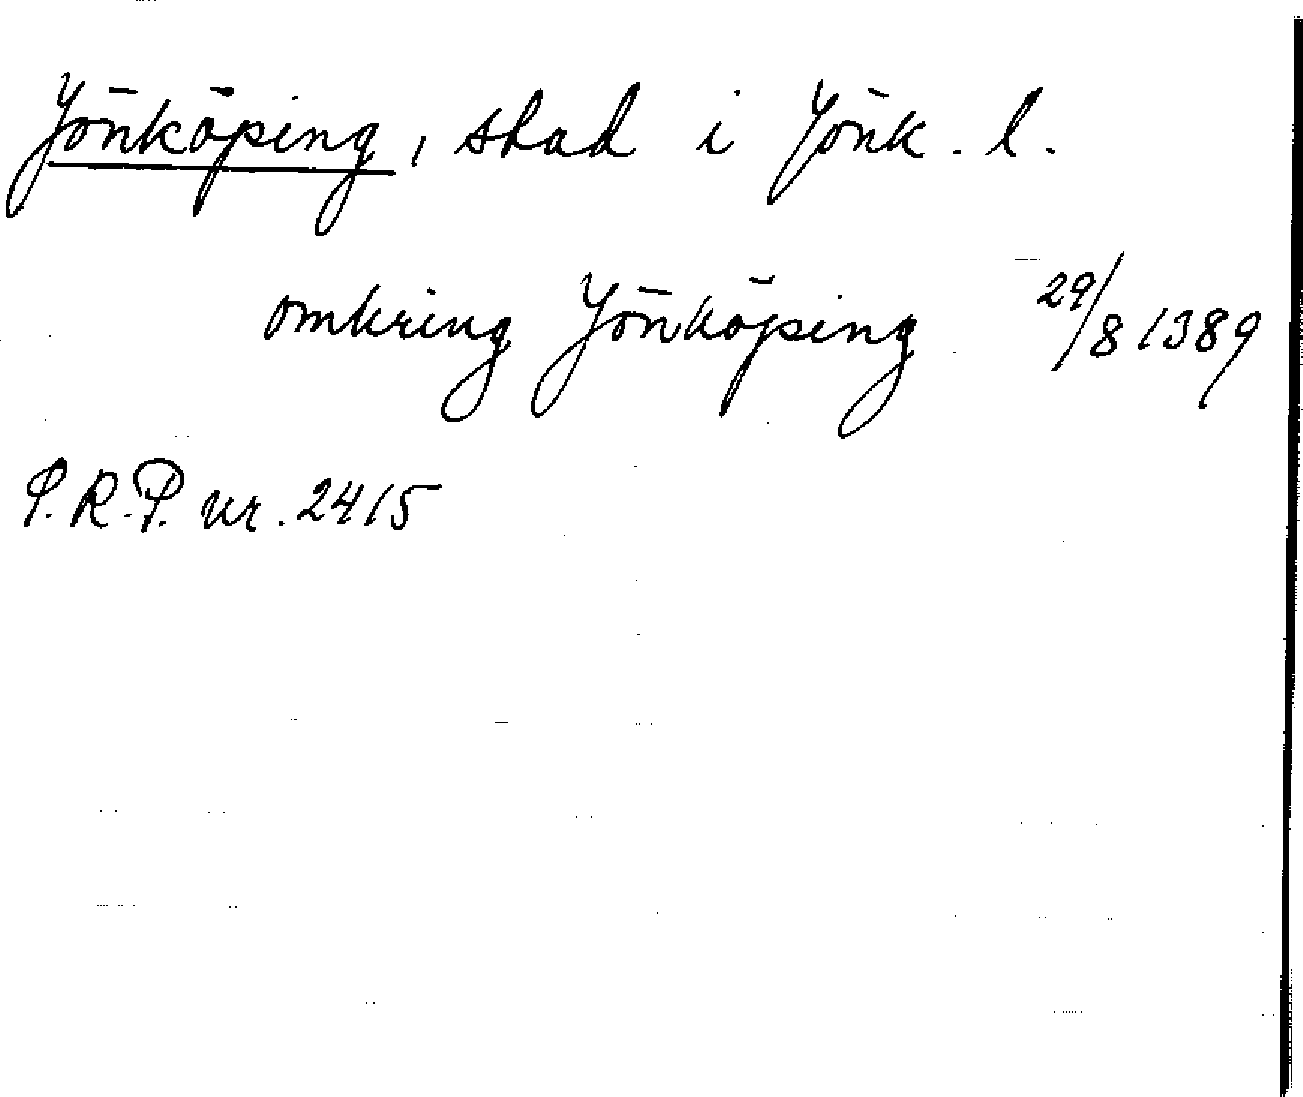 Jönköping, stad i Jönk. l.
omkring Jönköping 29/8 1389
S.R.P. nr. 2415